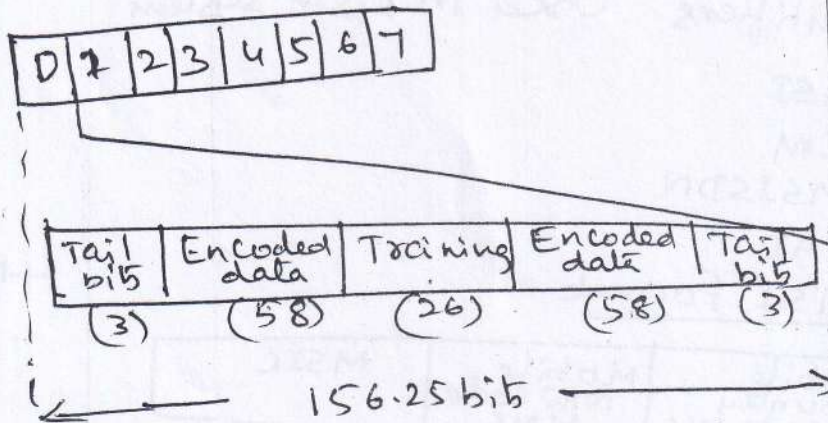 0 1 2 3 4 5 6 7
Tail bit Encoded data Training Encoded data Tail bit
(3) (58) (26) (58) (3)
156.25 bit